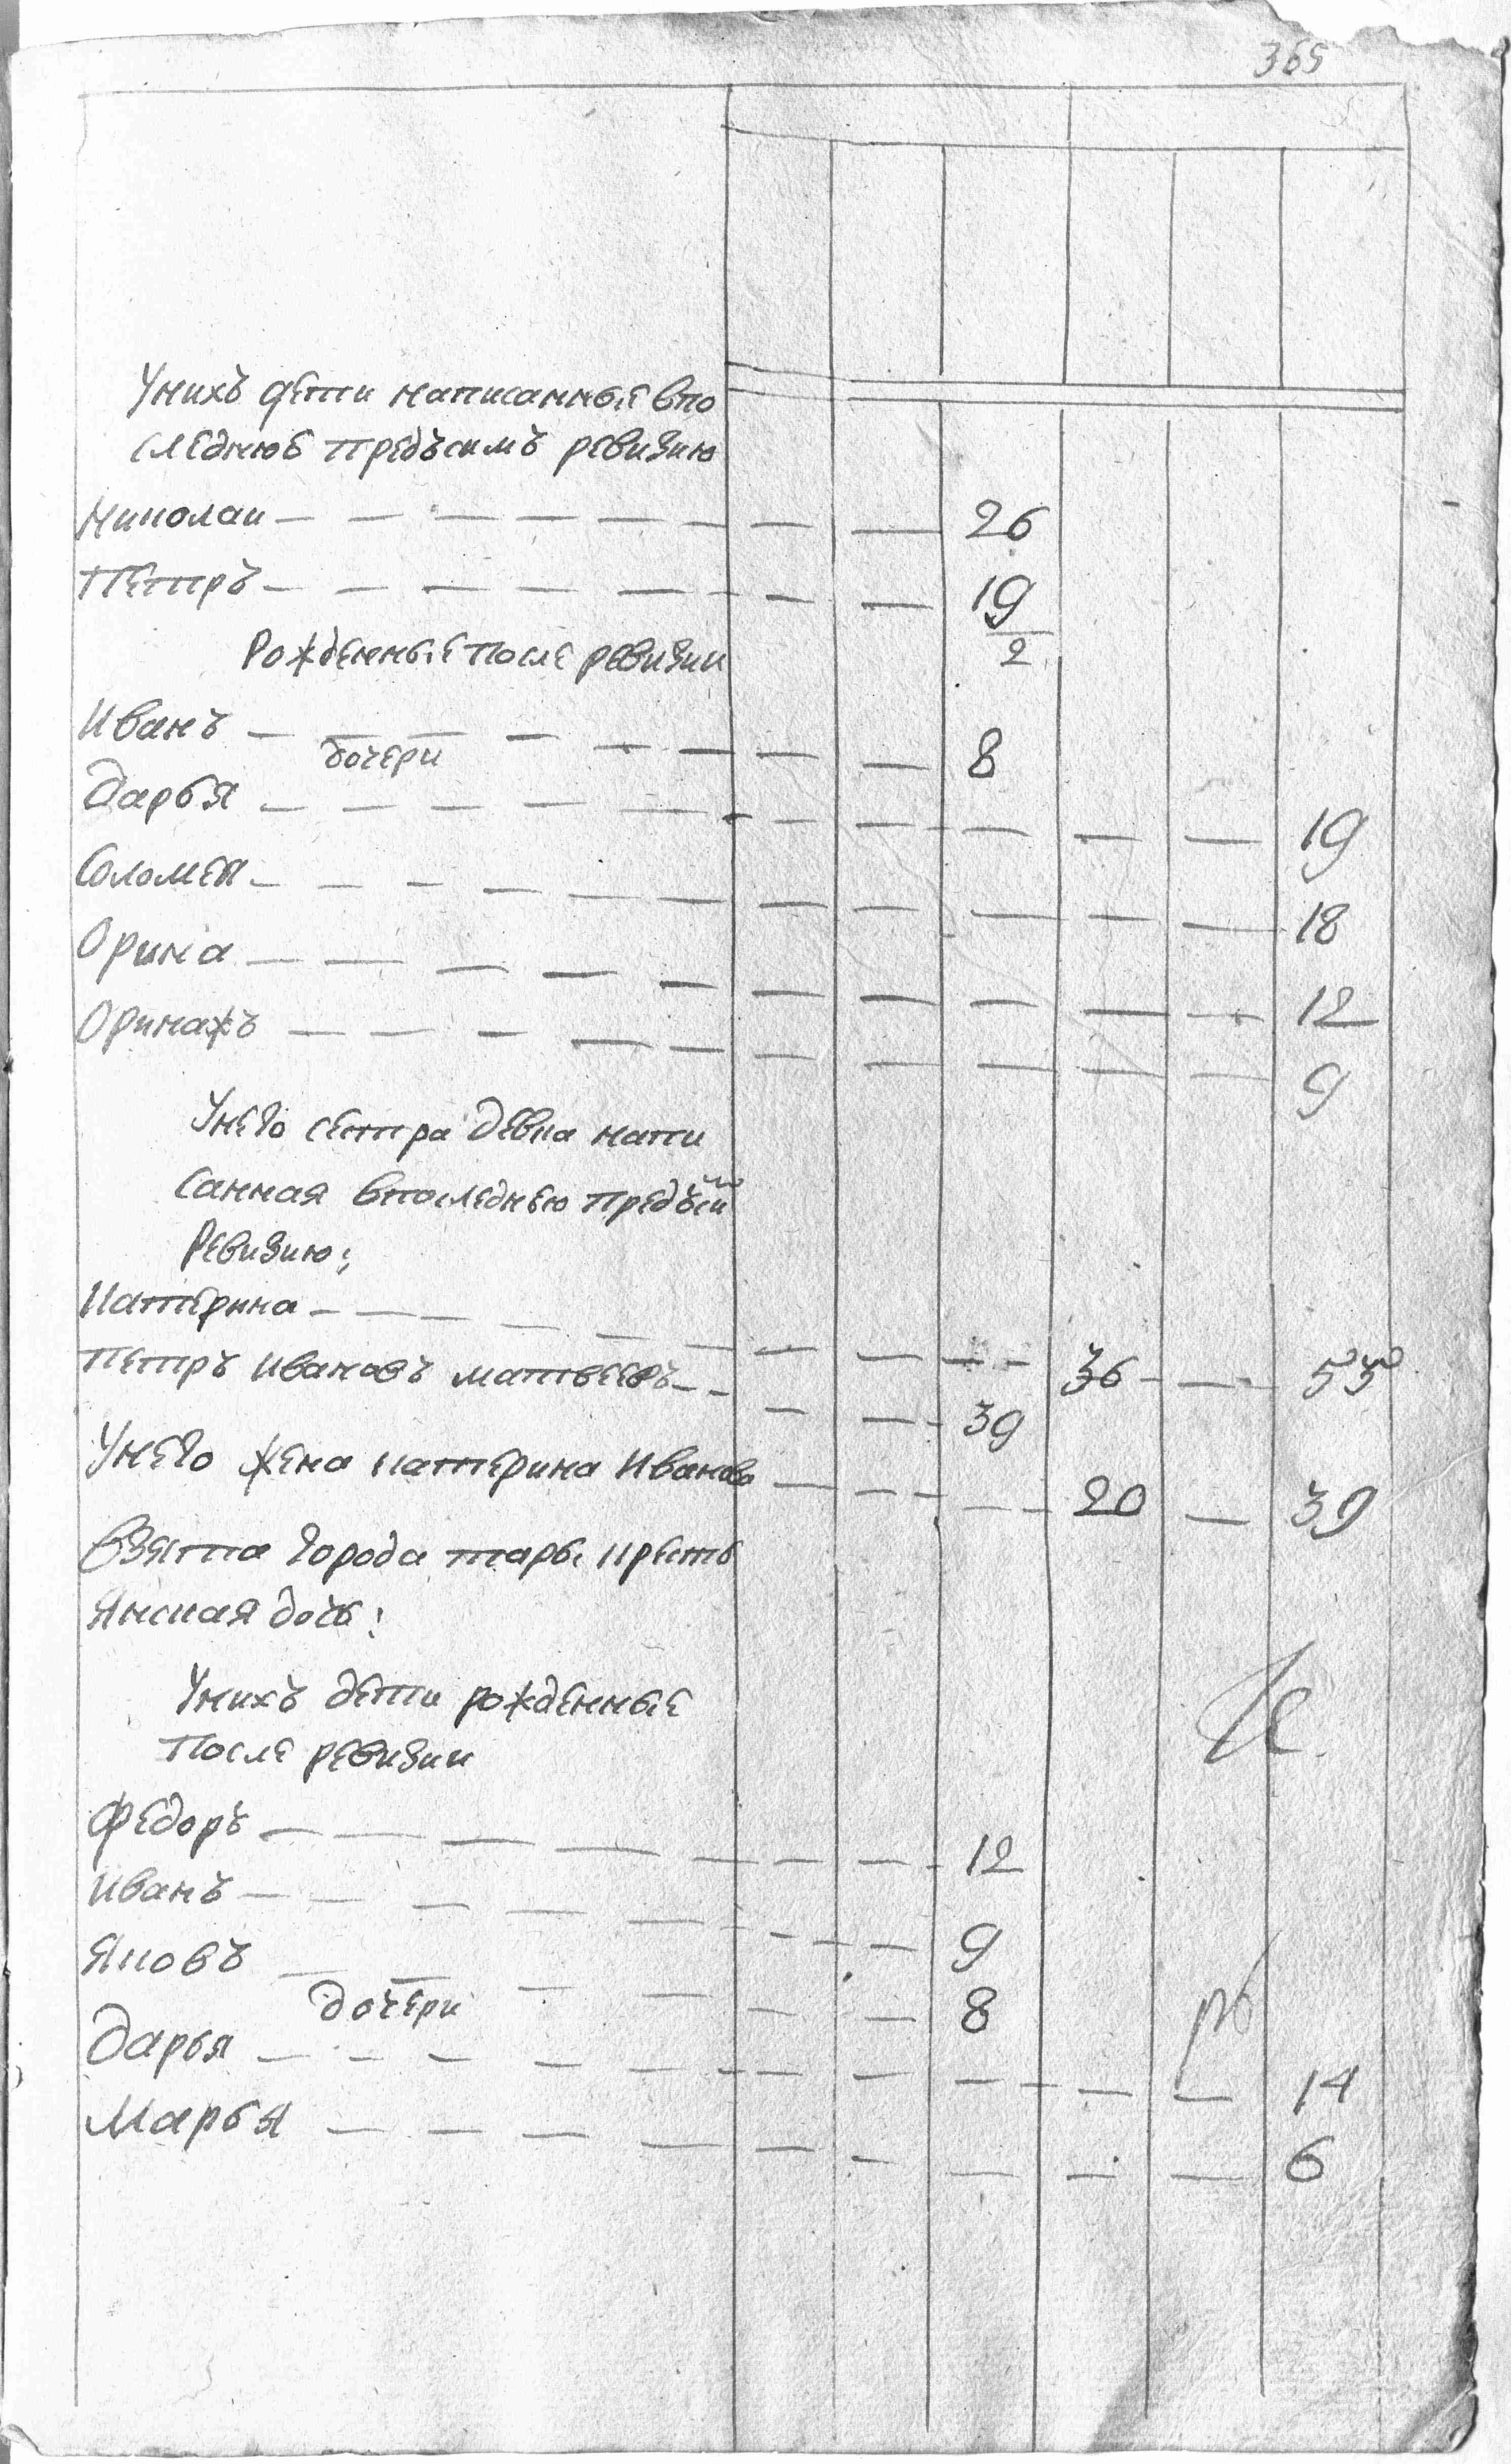 365
Унихъ дети написанные впо
следнюе предъсимъ ревизию
Николаи — — — — — — — — 26
Петръ — — — — — — — — 19
2
Рожденные после ревизии
Иванъ — — — — — — — — 8
дочери
Дарья — — — — — — — — — — — 19
Соломея — — — — — — — — — — — 18
Орина — — — — — — — — — — — 12
Оринажъ — — — — — — — — — — 9
Унего сестра девка напи
санная впоследнею предъсимъ
Ревизию:
Катерина — — — — — — — — — 36 — — 53
Петръ Ивановъ матвеевъ — — — — 39
Унего жена катерина Иванова — — — — 20 — 39
Взята города тары кресть
янская дочь:
Унихъ дети рожденные
После ревизии
Федоръ — — — — — — — — 12
Иванъ — — — — — — — — 9
Яковъ — — — — — — — 8
дочери
Дарья — — — — — — — — — — — 14
Марья — — — — — — — — — — 6